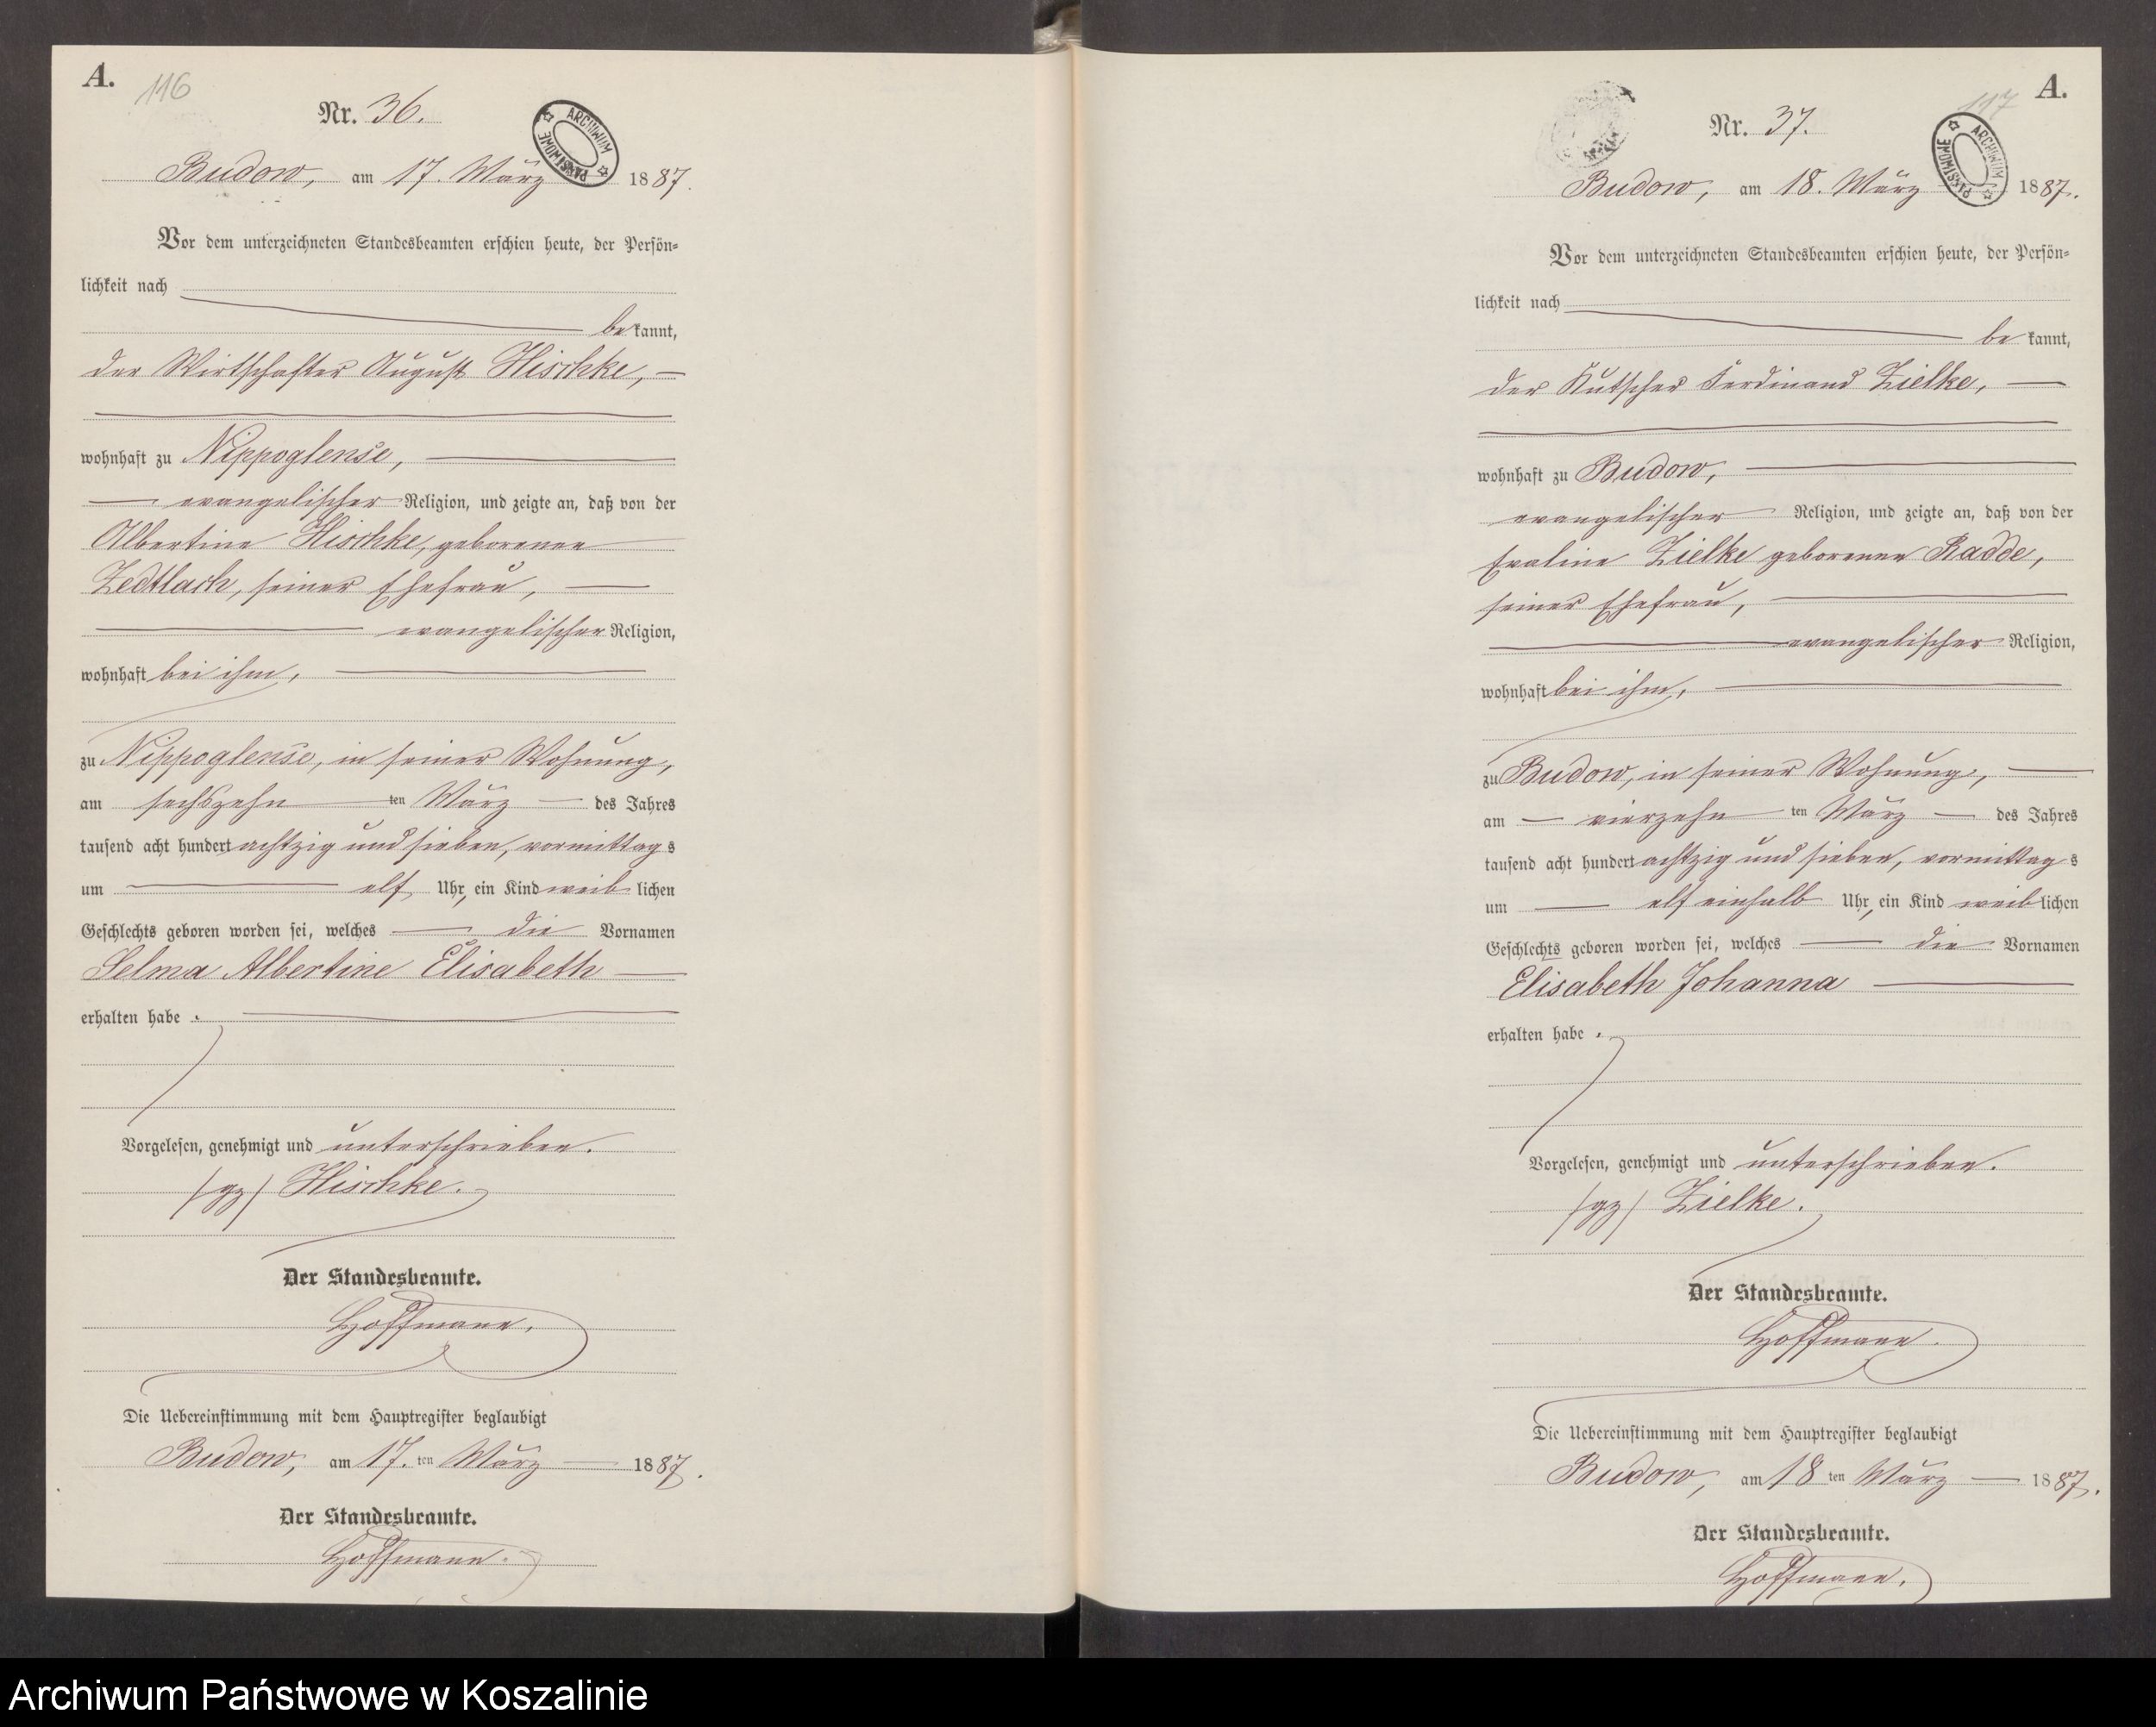 A.
116
Nr. 36.
ARCHIWUM PAŃSTWOWE
Budow, am 17. März 1887.
Vor dem unterzeichneten Standesbeamten erschien heute, der Persön-
lichkeit nach
bekannt,
der Wirtschafter August Hischke,
wohnhaft zu Nippoglense,
evangelischer Religion, und zeigte an, daß von der
Albertine Hischke, geborenen
Zedtlach, seiner Ehefrau,
evangelischer Religion,
wohnhaft bei ihm,
zu Nippoglense, in seiner Wohnung,
am sechszehn ten März des Jahres
tausend acht hundert achtzig und sieben, vormittags
um elf Uhr, ein Kind weiblichen
Geschlechts geboren worden sei, welches die Vornamen
Selma Albertine Elisabeth
erhalten habe.
Vorgelesen, genehmigt und unterschrieben.
/gz/ Hischke.
Der Standesbeamte.
Hoffmann.
Die Uebereinstimmung mit dem Hauptregister beglaubigt
Budow, am 17. ten März 1887.
Der Standesbeamte.
Hoffmann.
A.
117
Nr. 37.
ARCHIWUM PAŃSTWOWE
Budow, am 18. März 1887.
Vor dem unterzeichneten Standesbeamten erschien heute, der Persön-
lichkeit nach
bekannt,
der Kutscher Ferdinand Zielke,
wohnhaft zu Budow,
evangelischer Religion, und zeigte an, daß von der
Eveline Zielke geborenen Radde,
seiner Ehefrau,
evangelischer Religion,
wohnhaft bei ihm,
zu Budow, in seiner Wohnung,
am vierzehn ten März des Jahres
tausend acht hundert achtzig und sieben, vormittags
um elf einhalb Uhr, ein Kind weiblichen
Geschlechts geboren worden sei, welches die Vornamen
Elisabeth Johanna
erhalten habe.
Vorgelesen, genehmigt und unterschrieben.
/gz/ Zielke.
Der Standesbeamte.
Hoffmann.
Die Uebereinstimmung mit dem Hauptregister beglaubigt
Budow, am 18 ten März 1887.
Der Standesbeamte.
Hoffmann.
Archiwum Państwowe w Koszalinie